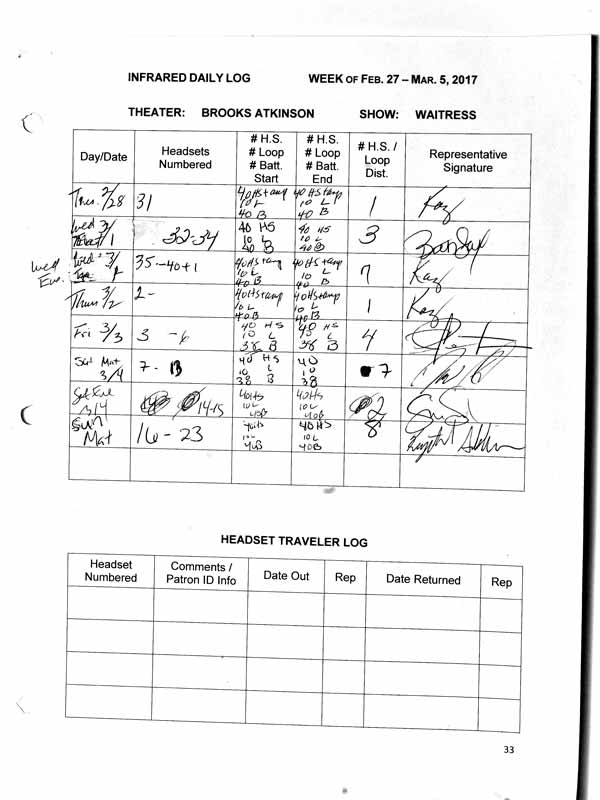 INFRARED DAILY LOG WEEK OF FEB. 27 – MAR. 5, 2017
THEATER: BROOKS ATKINSON SHOW: WAITRESS
Day/Date
Headsets
Numbered
# H.S.
# Loop
# Batt.
Start
# H.S.
# Loop
# Batt.
End
# H.S. /
Loop
Dist.
Representative
Signature
Tues. 2/28 31
40 HS + amp
10 L
40 B
40 HS + amp
10 L
40 B
1 Kaz
Wed 3/1
32-34
40 HS
10 L
40 B
40 HS
10 L
40 B
3
Wed Eve.
Wed 3/1
35-40+1
40 HS + amp
10 L
40 B
40 HS + amp
10 L
40 B
7 Kaz
Thurs 3/2
2-
40 HS + amp
10 L
40 B
40 HS + amp
10 L
40 B
1 Kaz
Fri 3/3
3 - 6
40 HS
10 L
38 B
40 HS
10 L
38 B
4
Sat Mat
3/4
7 - 13
40 HS
10 L
38 B
40
10
38
7
Sat Eve
3/4
14-15
40HS
10L
40B
40HS
10L
40B
2
Sun
Mat
16 - 23
40HS
10L
40B
40HS
10L
40B
8
HEADSET TRAVELER LOG
Headset
Numbered
Comments /
Patron ID Info
Date Out
Rep
Date Returned
Rep
33